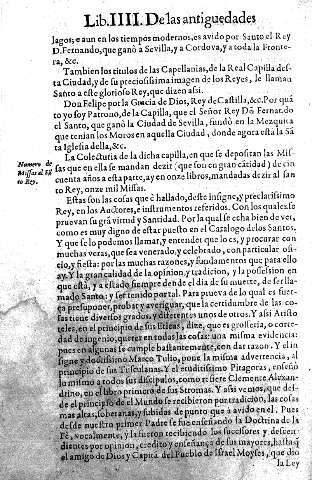 Lib. IIII. De las antiguedades
lagos; e aun en los tiempos modernos, es avido por Santo el Rey
D. Fernando, que ganò a Sevilla, y a Cordova, y a toda la Fronte-
ra, &c.
Tambien los titulos de las Capellanias, de la Real Capilla desta
Ciudad, y de su preciosissima imagen de los Reyes, le llaman
Santo a este glorioso Rey, que dizen assi.
Don Felipe por la Gracia de Dios, Rey de Castilla, &c. Por quã
to yo soy Patrono, de la Capilla, que el Señor Rey Dõ Fernando
el Santo, que ganò la Ciudad de Sevilla, fundò en la Mezquita
que tenian los Moros en aquella Ciudad, donde agora està la Sã
ta Iglesia della, &c.
Numero de
Missas al Sã
to Rey.
La Colecturia de la dicha capilla, en que se depositan las Mis-
sas que en ella se mandan dezir (que son en gran cãtidad) de cin
cuenta años a esta parte, ay en onze libros, mandadas dezir al san
to Rey, onze mil Missas.
Estas son las cosas que è hallado, deste insigne, y preclarissimo
Rey, en los Auctores, e instrumentos referidos. Con los quales se
pruevan su grã virtud y Santidad. Por la qual se echa bien de ver,
como es muy digno de estar puesto en el Catalogo delos Santos.
Y que se lo podemos llamar, y entender que lo es, y procurar con
muchas veras, que sea venerado, y celebrado, con particular ofi-
cio, y fiesta: por las muchas razones, y fundamentos que para ello
ay. Y la gran calidad de la opinion, y tradicion, y la possesion en
que està, y a estado siempre desde el dia de su muerte, de ser lla-
mado Santo: y ser tenido por tal. Para prueva de lo qual es fuer-
ça presuponer, probar, y averiguar, que la certidumbre de las co-
sas tiene diversos grados, y diferentes unos de otros. Y assi Aristo
teles, en el principio de sus Eticas, dize, que es grosseria, o corte-
dad de ingenio, querer en todas las cosas: una misma evidencia:
pues en algunas se cumple bastantemente, con dar razon. Y el in
signe y doctissimo Marco Tulio, pone la misma advertencia, al
principio de sus Tusculanas. Y el eruditissimo Pitagoras, enseñò
lo mismo a todos sus discipulos, como refiere Clemente Alexan-
drino, en el libro primero de sus Stromas. Y assi vemos, que des-
de el principio de el Mundo se recibieron por tradicion, las cosas
mas altas, soberanas, y subidas de punto que à avido en el. Pues
desde nuestro primer Padre se fue enseñando la Doctrina de la
Fè, vocalmente, y la fueron recibiendo los sucessores y descen-
dientes por opinion, credito y enseñança de sus mayores, hasta q̃
el amigo de Dios y Capitã del Pueblo de Israel Moyses, que dio
la Ley